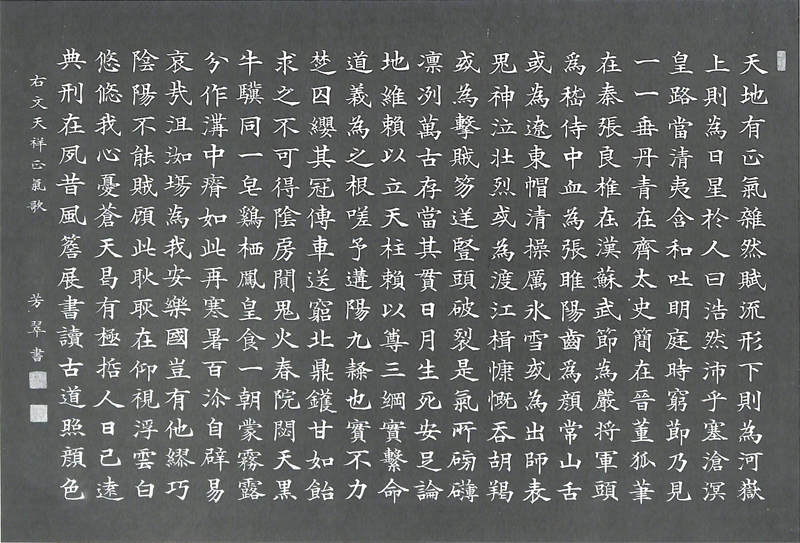 天地有正氣雜然賦流形下則為河嶽
上則為日星於人曰浩然沛乎塞滄溟
皇路當清夷含和吐明庭時窮節乃見
一一垂丹青在齊太史簡在晉董狐筆
在秦張良椎在漢蘇武節為嚴將軍頭
為嵇侍中血為張睢陽齒為顏常山舌
或為遼東帽清操厲氷雪或為出師表
鬼神泣壯烈或為渡江楫慷慨吞胡羯
或為擊賊笏逆豎頭破裂是氣所磅礴
凛冽萬古存當其貫日月生死安足論
地維賴以立天柱賴以尊三綱實繫命
道義為之根嗟予遘陽九隸也實不力
楚囚纓其冠傳車送窮北鼎鑊甘如飴
求之不可得陰房闃鬼火春院閟天黑
牛驥同一皂鷄栖鳳皇食一朝蒙霧露
分作溝中瘠如此再寒暑百沴自辟易
哀哉沮洳場為我安樂國豈有他繆巧
陰陽不能賊顧此耿耿在仰視浮雲白
悠悠我心憂蒼天曷有極哲人日已遠
典刑在夙昔風簷展書讀古道照顏色
右文天祥正氣歌
芳翠書